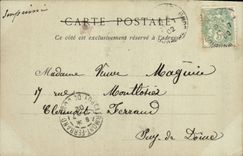 Imprimé
CARTE POSTALE
Ce côté est exclusivement réservé à l'adresse
Madame Veuve Magnin
17 rue Montlosier
Clermont Ferrand
Puy de Dôme